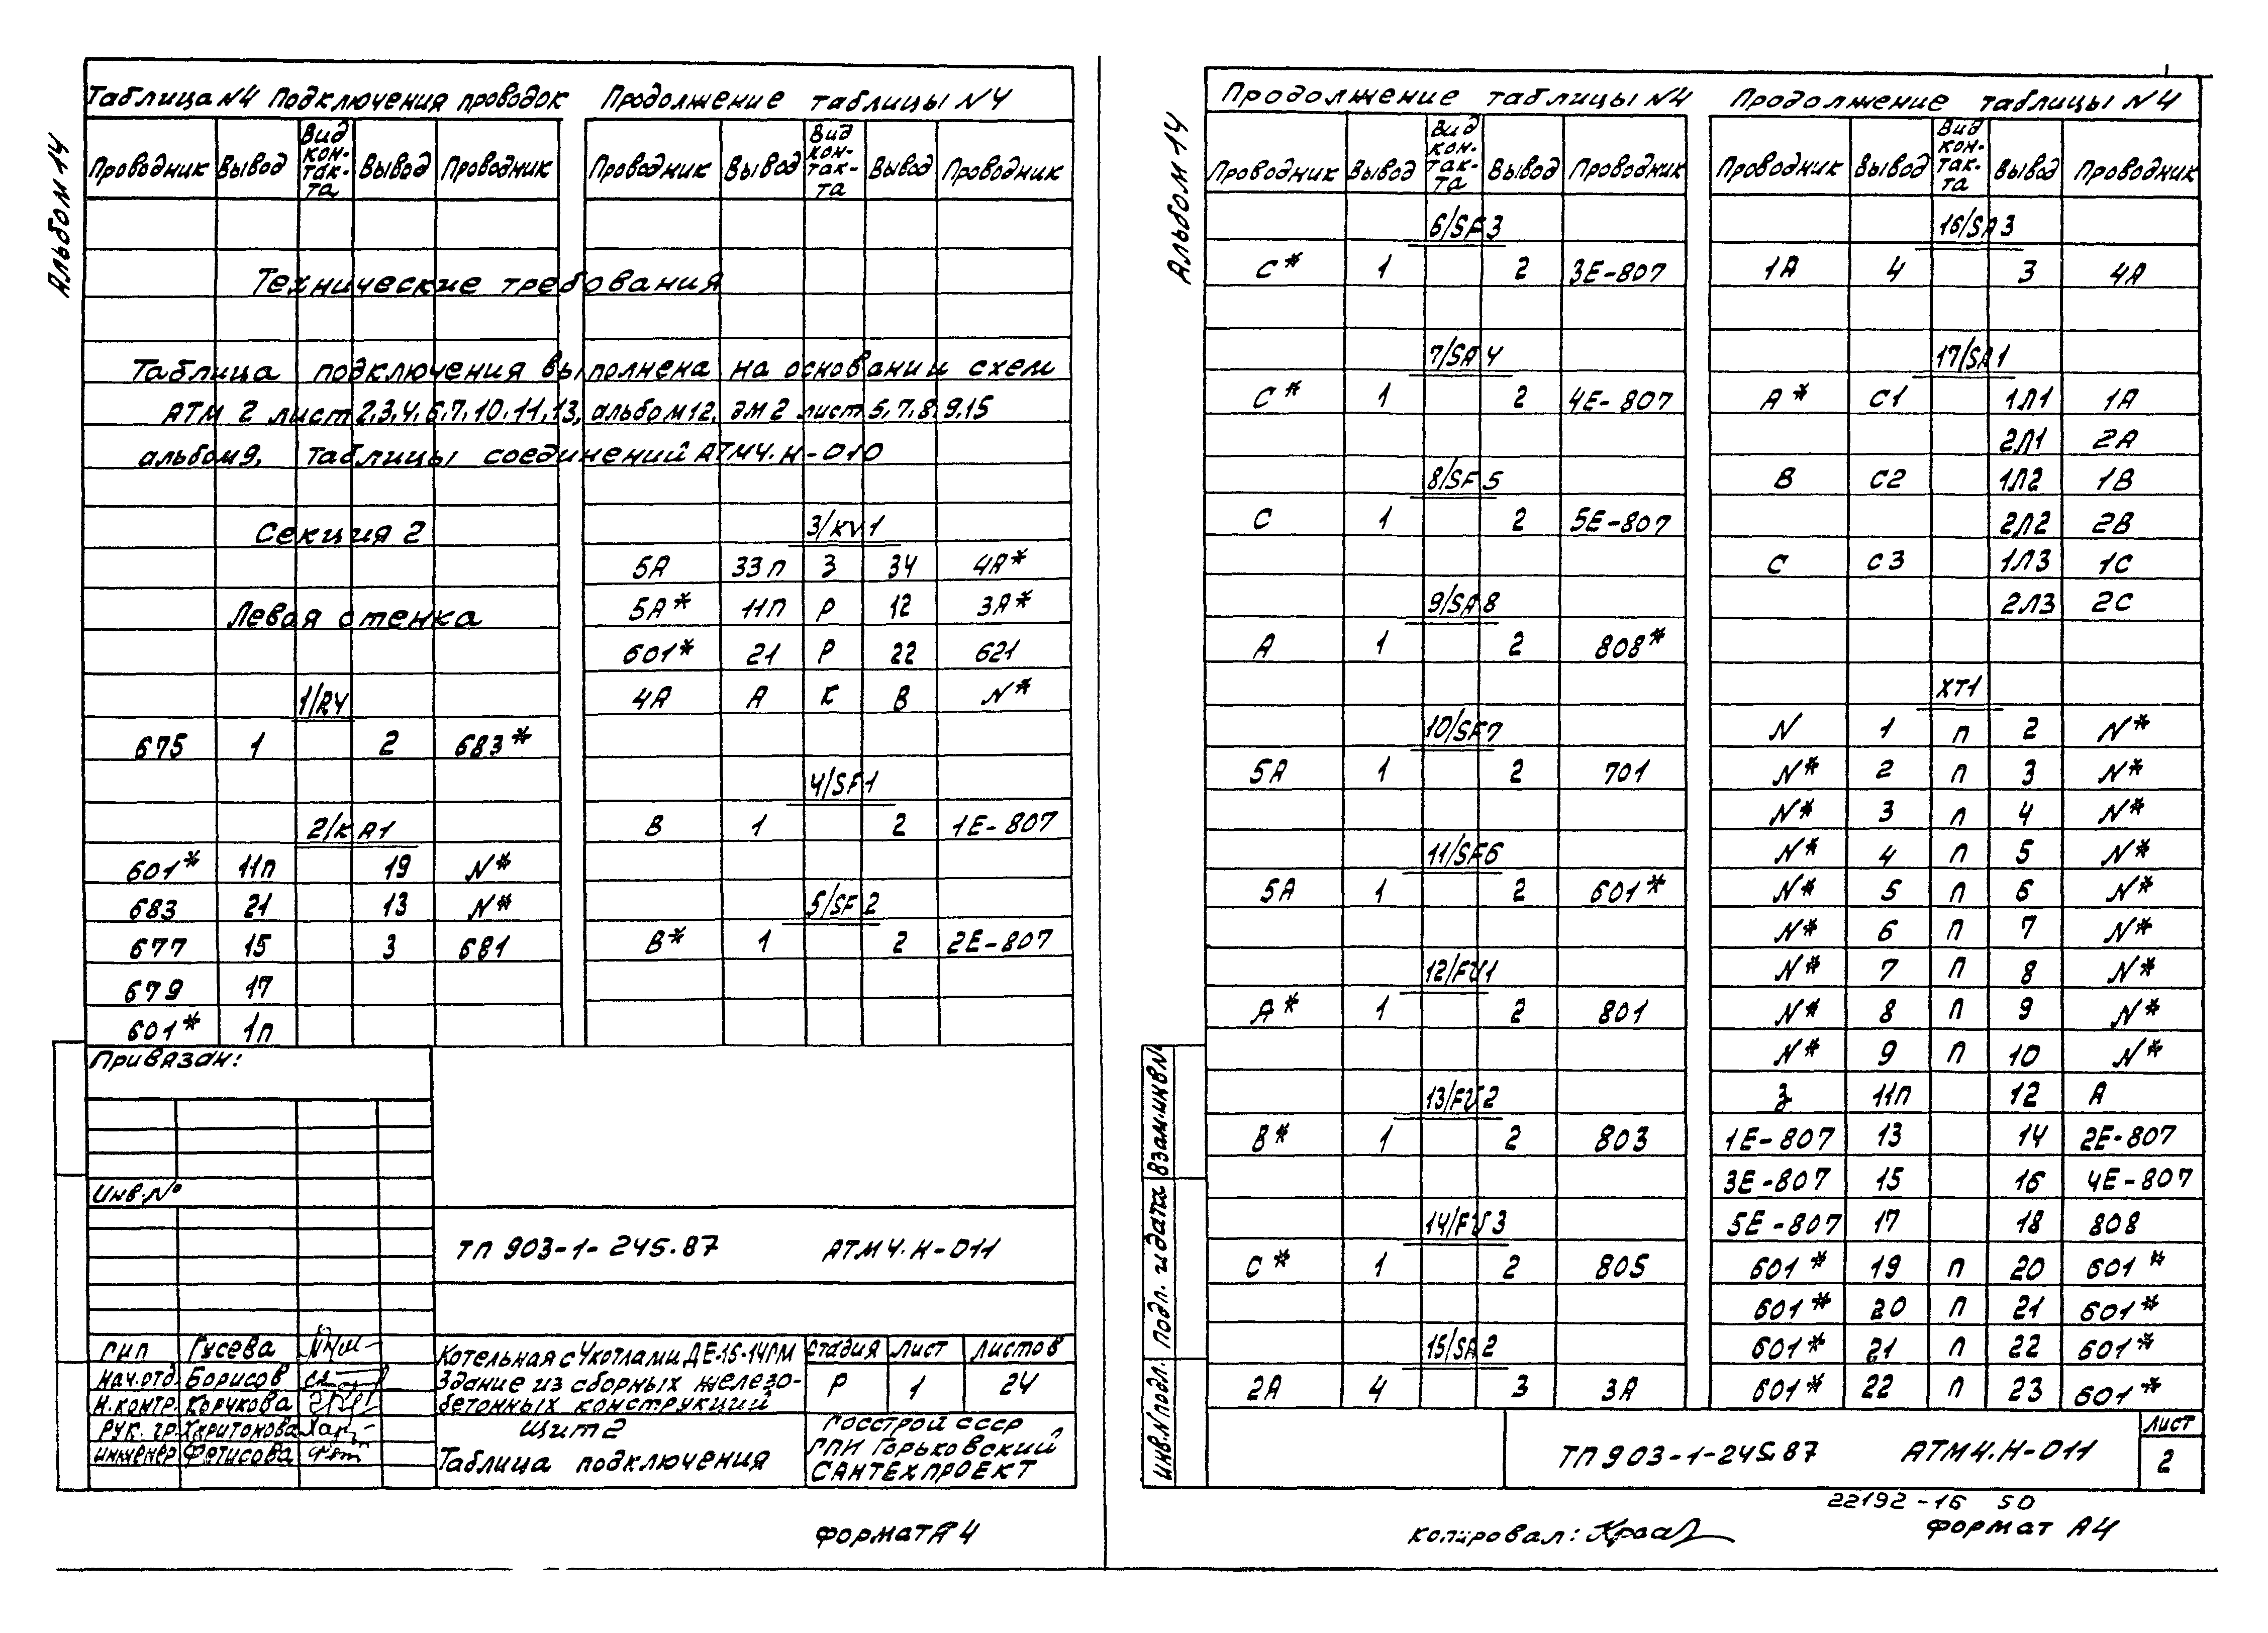 Альбом 14
Таблица N4 Подключения проводок
Проводник Вывод Вид кон-так-та Вывод Проводник
Продолжение таблицы N4
Проводник Вывод Вид кон-так-та Вывод Проводник
Технические требования
Таблица подключения выполнена на основании схем
АТМ 2 лист 2,3,4,6,7,10,11,13, альбом 12, ЭМ 2 лист 5,7,8,9,15
альбом 9, таблицы соединений АТМ4.Н-010
Секция 2
Левая стенка
1/R4
675 1 2 683*
2/КА1
601* 11п 19 N*
683 21 13 N*
677 15 3 681
679 17
601* 1п
3/KV1
5А 33п З 34 4А*
5А* 11п Р 12 3А*
601* 21 Р 22 621
4А А К В N*
4/SF1
В 1 2 1Е-807
5/SF2
В* 1 2 2Е-807
Привязан:
Инв.№
ТП 903-1-245.87 АТМ4.Н-011
ГИП Гусева
Нач.отд. Борисов
Н.контр. Корчкова
Рук. гр. Харитонова
Инженер Фетисова
Котельная с 4 котлами ДЕ-15-14ГМ
Здание из сборных железо-
бетонных конструкций
Щит 2
Таблица подключения
Стадия Лист Листов
Р 1 24
Госстрой СССР
ГПИ Горьковский
САНТЕХПРОЕКТ
Формат А4
Альбом 14
Продолжение таблицы N4
Проводник Вывод Вид кон-так-та Вывод Проводник
6/SF3
С* 1 2 3Е-807
7/SA4
С* 1 2 4Е-807
8/SF5
С 1 2 5Е-807
9/SA8
А 1 2 808*
10/SF7
5А 1 2 701
11/SF6
5А 1 2 601*
12/FU1
А* 1 2 801
13/FU2
В* 1 2 803
14/FU3
С* 1 2 805
15/SA2
2А 4 3 3А
Продолжение таблицы N4
Проводник Вывод Вид кон-так-та Вывод Проводник
16/SA3
1А 4 3 4А
17/SA1
А* С1 1Л1 1А
2Л1 2А
В С2 1Л2 1В
2Л2 2В
С С3 1Л3 1С
2Л3 2С
ХТ1
N 1 п 2 N*
N* 2 п 3 N*
N* 3 п 4 N*
N* 4 п 5 N*
N* 5 п 6 N*
N* 6 п 7 N*
N* 7 п 8 N*
N* 8 п 9 N*
N* 9 п 10 N*
З 11п 12 А
1Е-807 13 14 2Е-807
3Е-807 15 16 4Е-807
5Е-807 17 18 808
601* 19 п 20 601*
601* 20 п 21 601*
601* 21 п 22 601*
601* 22 п 23 601*
Инв.N подл. Подл. и дата Взам.инв.N
ТП 903-1-245.87 АТМ4.Н-011
Лист
2
22192-16 50
Копировал:
Формат А4